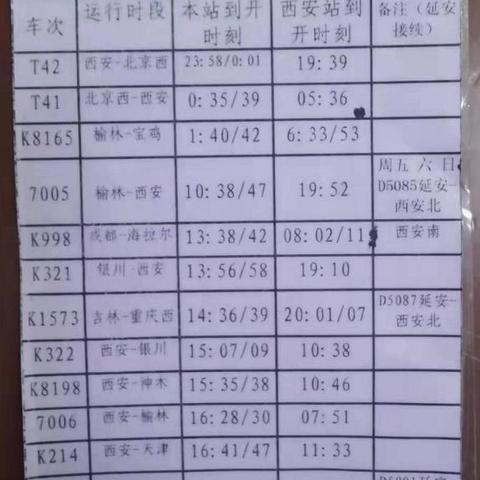 车次 运行时段 本站到开时刻 西安站到开时刻 备注（延安接续）
T42 西安-北京西 23:58/0:01 19:39
T41 北京西-西安 0:35/39 05:36
K8165 榆林-宝鸡 1:40/42 6:33/53
7005 榆林-西安 10:38/47 19:52 周五 六 日D5085延安-西安北
K998 成都-海拉尔 13:38/42 08:02/11 西安南
K321 银川-西安 13:56/58 19:10
K1573 吉林-重庆西 14:36/39 20:01/07 D5087延安-西安北
K322 西安-银川 15:07/09 10:38
K8198 西安-神木 15:35/38 10:46
7006 西安-榆林 16:28/30 07:51
K214 西安-天津 16:41/47 11:33